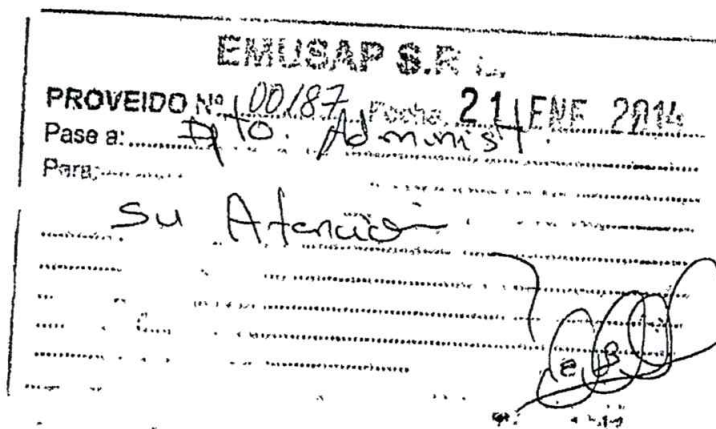 EMUSAP S.R.L.
PROVEIDO Nº 00187 Fecha. 21 ENE 2014
Pase a: Dpto. Administ.
Para:
Su Atención